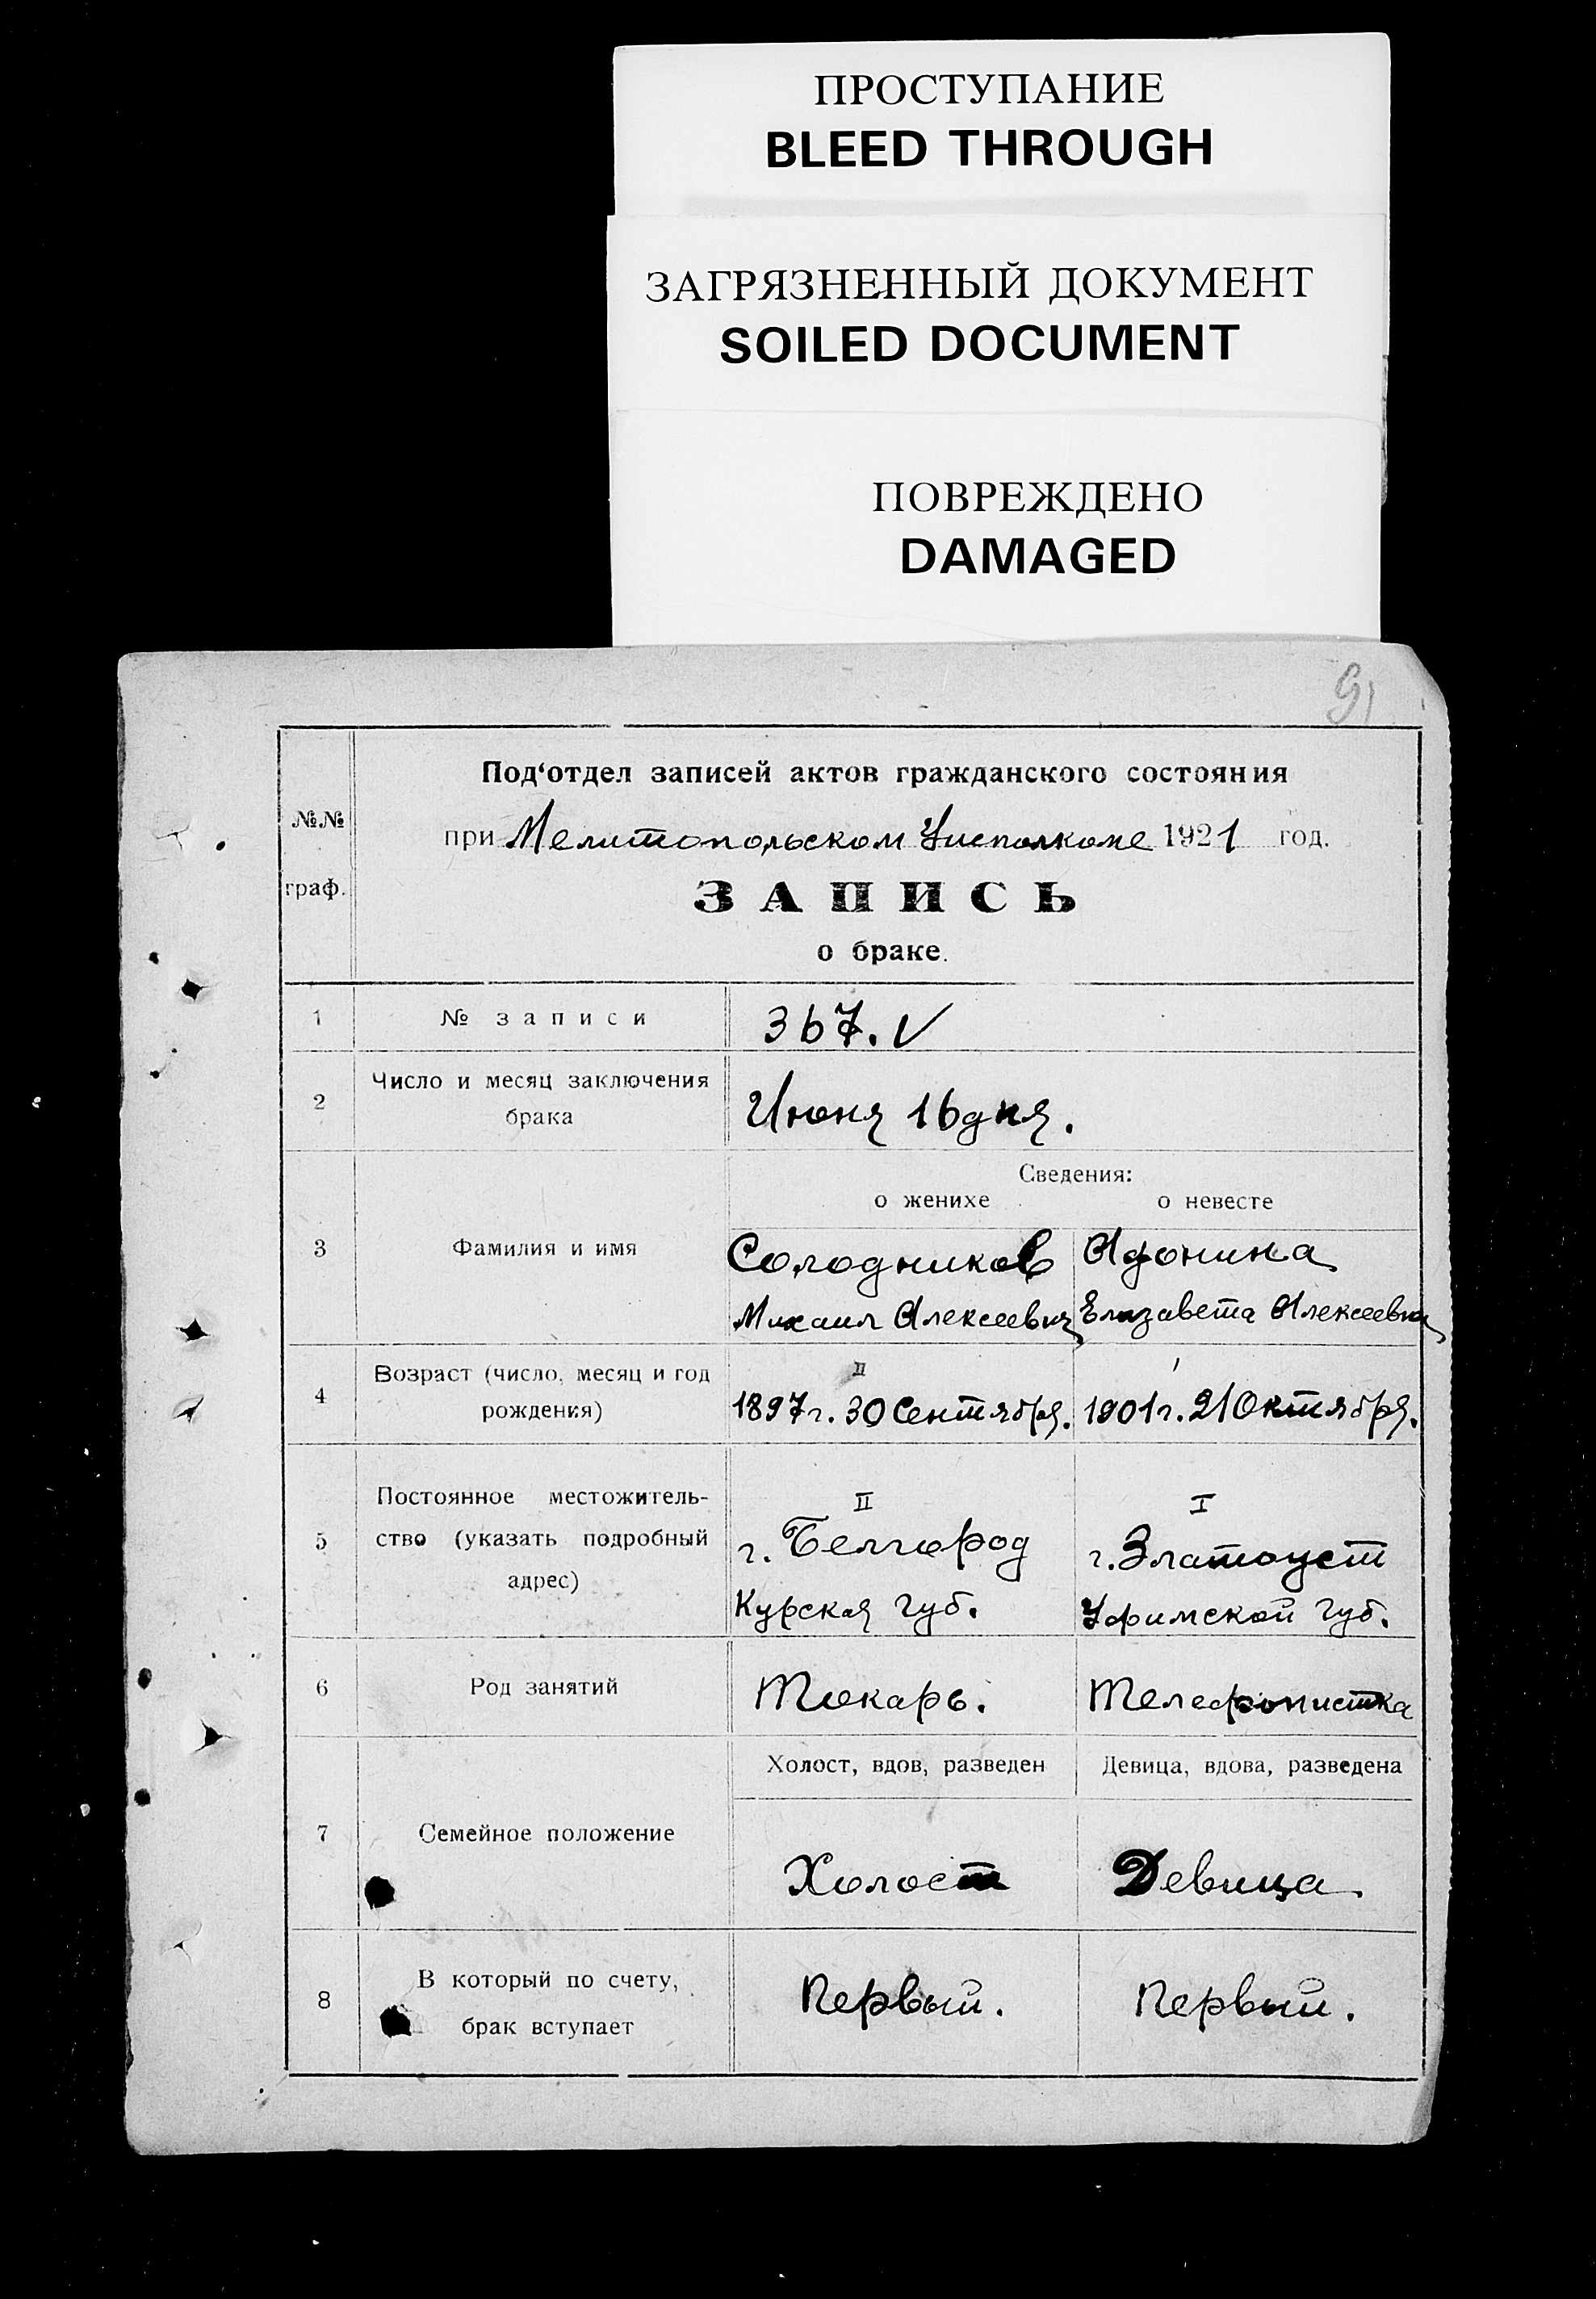 ПРОСТУПАНИЕ
BLEED THROUGH
ЗАГРЯЗНЕННЫЙ ДОКУМЕНТ
SOILED DOCUMENT
ПОВРЕЖДЕНО
DAMAGED
91
№№
граф.
Под‘отдел записей актов гражданского состояния
при Мелитопольском Уисполкоме 1921 год.
ЗАПИСЬ
о браке.
1 № записи 367. V
2 Число и месяц заключения
брака
Июня 16 дня.
Сведения:
о женихе о невесте
3 Фамилия и имя
Солодников Афонина
Михаил Алексеевич Елизавета Алексеевна
4 Возраст (число, месяц и год
рождения)
II I
1897 г. 30 Сентября. 1901 г. 21 Октября.
5 Постоянное местожитель-
ство (указать подробный
адрес)
II I
г. Белгород г. Златоуст
Курская губ. Уфимской губ.
6 Род занятий Токарь. Телефонистка
Холост, вдов, разведен Девица, вдова, разведена
7 Семейное положение
Холост Девица
8 В который по счету,
брак вступает
Первый. Первый.